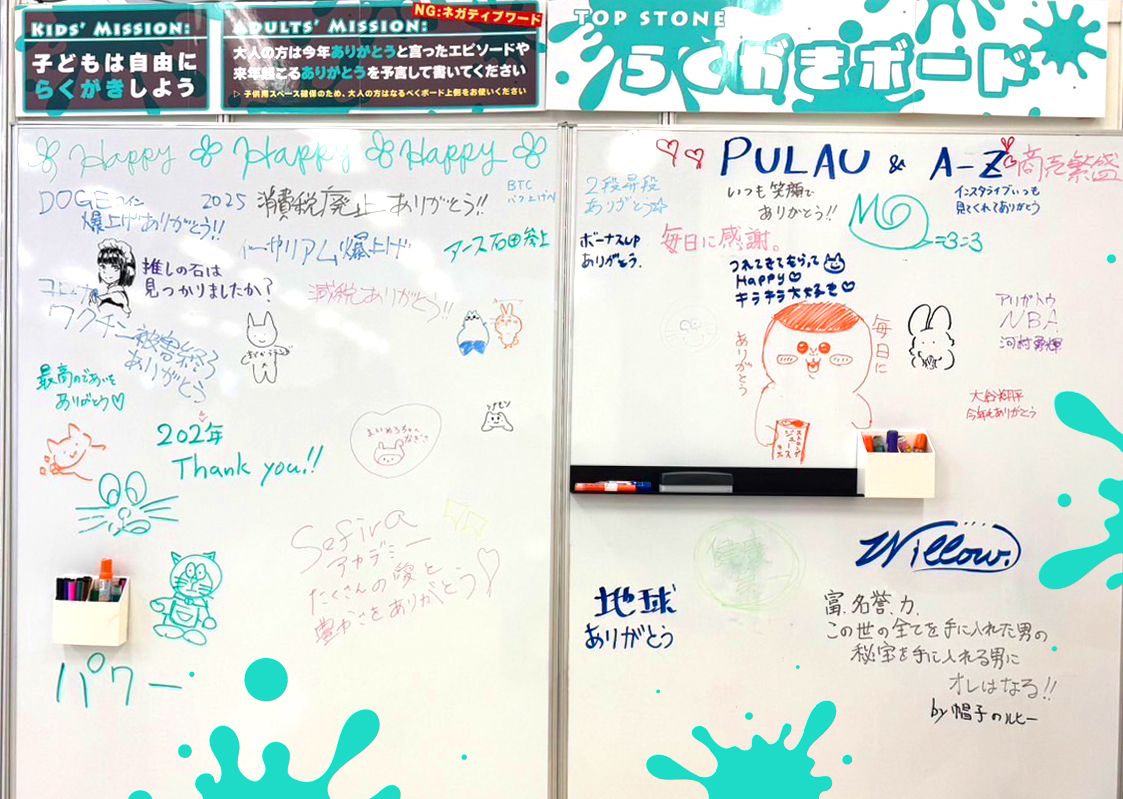 KIDS' MISSION:
子どもは自由に
らくがきしよう
ADULTS' MISSION:
NG:ネガティブワード
大人の方は今年ありがとうと言ったエピソードや
来年起こるありがとうを予言して書いてください
▷ 子供用スペース確保のため、大人の方はなるべくボード上側をお使いください
TOP STONE
らくがきボード
Happy Happy Happy
DOGEコイン
爆上げありがとう!!
2025 消費税廃止ありがとう!!
BTC
バク上げへ
イーサリアム爆上げ
アース石田参上
推しの石は
見つかりましたか?
減税ありがとう!!
コロナ
ワクチン被害終了
ありがとう
最高のであいを
ありがとう♡
202年
Thank you!!
Sefira
アカデミー
たくさんの愛と
豊かさをありがとう
パワー
PULAU & A-Z
商売繁盛
2段昇段
ありがとう☆
いつも笑顔で
ありがとう!!
インスタライブいつも
見てくれてありがとう
=3=3
ボーナスUP
ありがとう.
毎日に感謝。
つれてきてもらって
Happy♡
キラキラ大大好き♡
毎日に
ありがとう
ストロング
ジュース
アリガトウ
NBA
河村勇輝
大谷翔平
今年もありがとう
健康
第一
Willow.
地球
ありがとう
富.名誉.力.
この世の全てを手に入れた男の
秘宝を手に入れる男に
オレはなる!!
by 帽子のルヒー